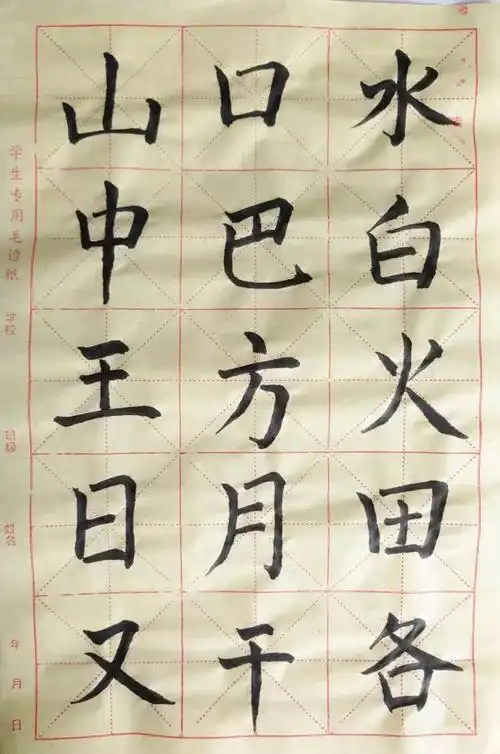 山口水
中巴白
王方火
日月田
又干各
学生专用毛边纸
学校
班级
姓名
年月日